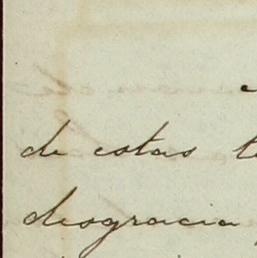 de estas
desgracia